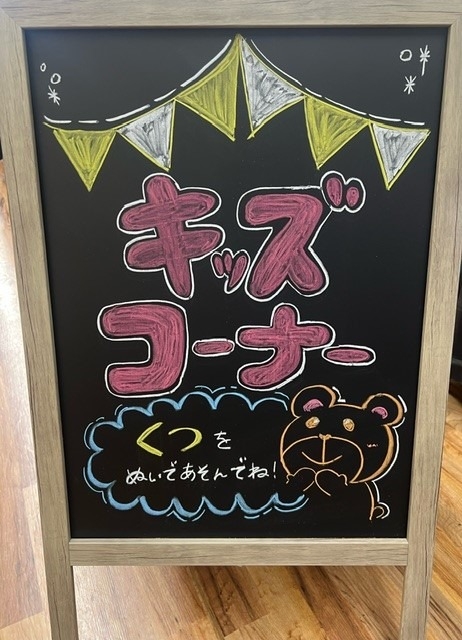 キッズ
コーナー
くつを
ぬいであそんでね!